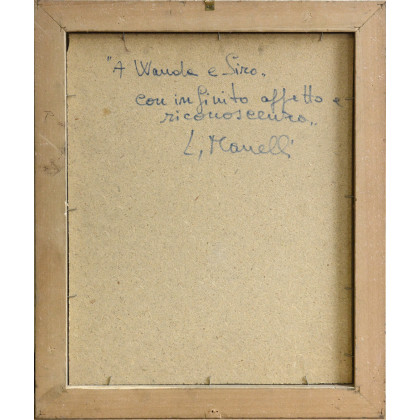 "A Wanda e Siro.
con infinito affetto e
riconoscenza..
L. Manelli